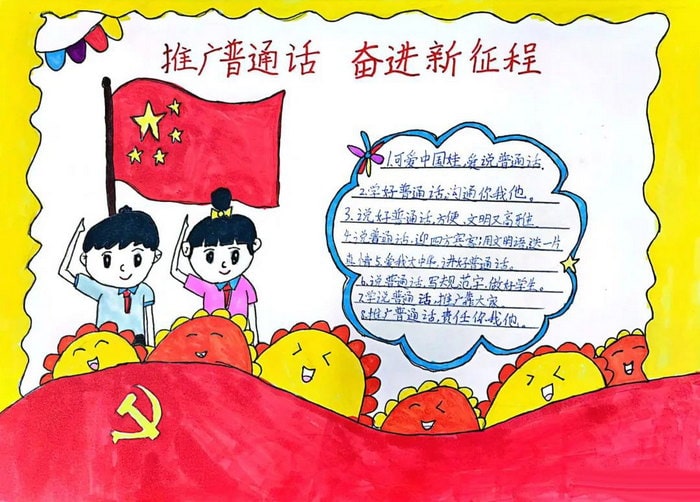 推广普通话 奋进新征程
1.可爱中国娃,爱说普通话.
2.学好普通话,沟通你我他。
3.说好普通话,方便、文明又高雅
4.说普通话,迎四方宾客;用文明语,送一片
真情.5.爱我大中华,讲好普通话。
6.说普通话,写规范字,做好学生。
7.学说普通话,推广靠大家
8.推广普通话,责任你我他。